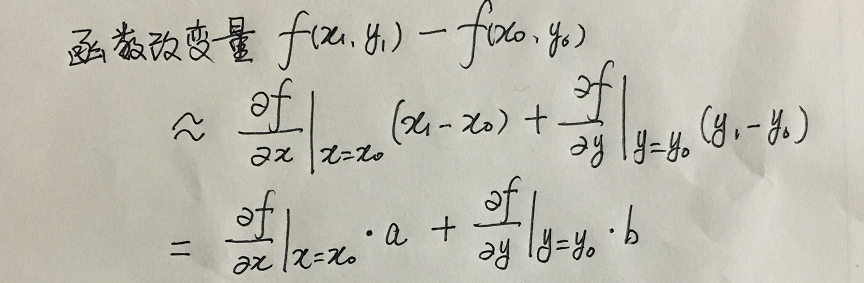 函数改变量 f(x₁, y₁) − f(x₀, y₀)
≈ ∂f/∂x|ₓ₌ₓ₀ (x₁ − x₀) + ∂f/∂y|y=y₀ (y₁ − y₀)
= ∂f/∂x|ₓ₌ₓ₀ · a + ∂f/∂y|y=y₀ · b